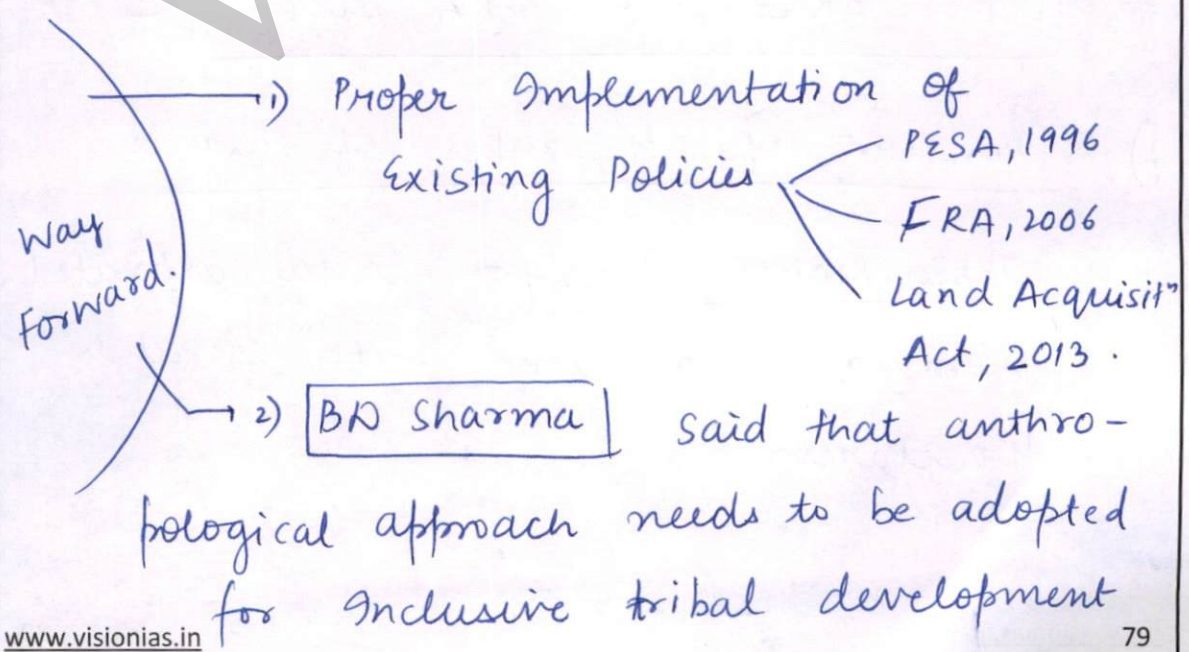 1) Proper Implementation of
Existing Policies
PESA, 1996
FRA, 2006
Land Acquisitⁿ
Act, 2013.
Way
Forward.
2) BD Sharma said that anthro-
pological approach needs to be adopted
for Inclusive tribal development
www.visionias.in
79